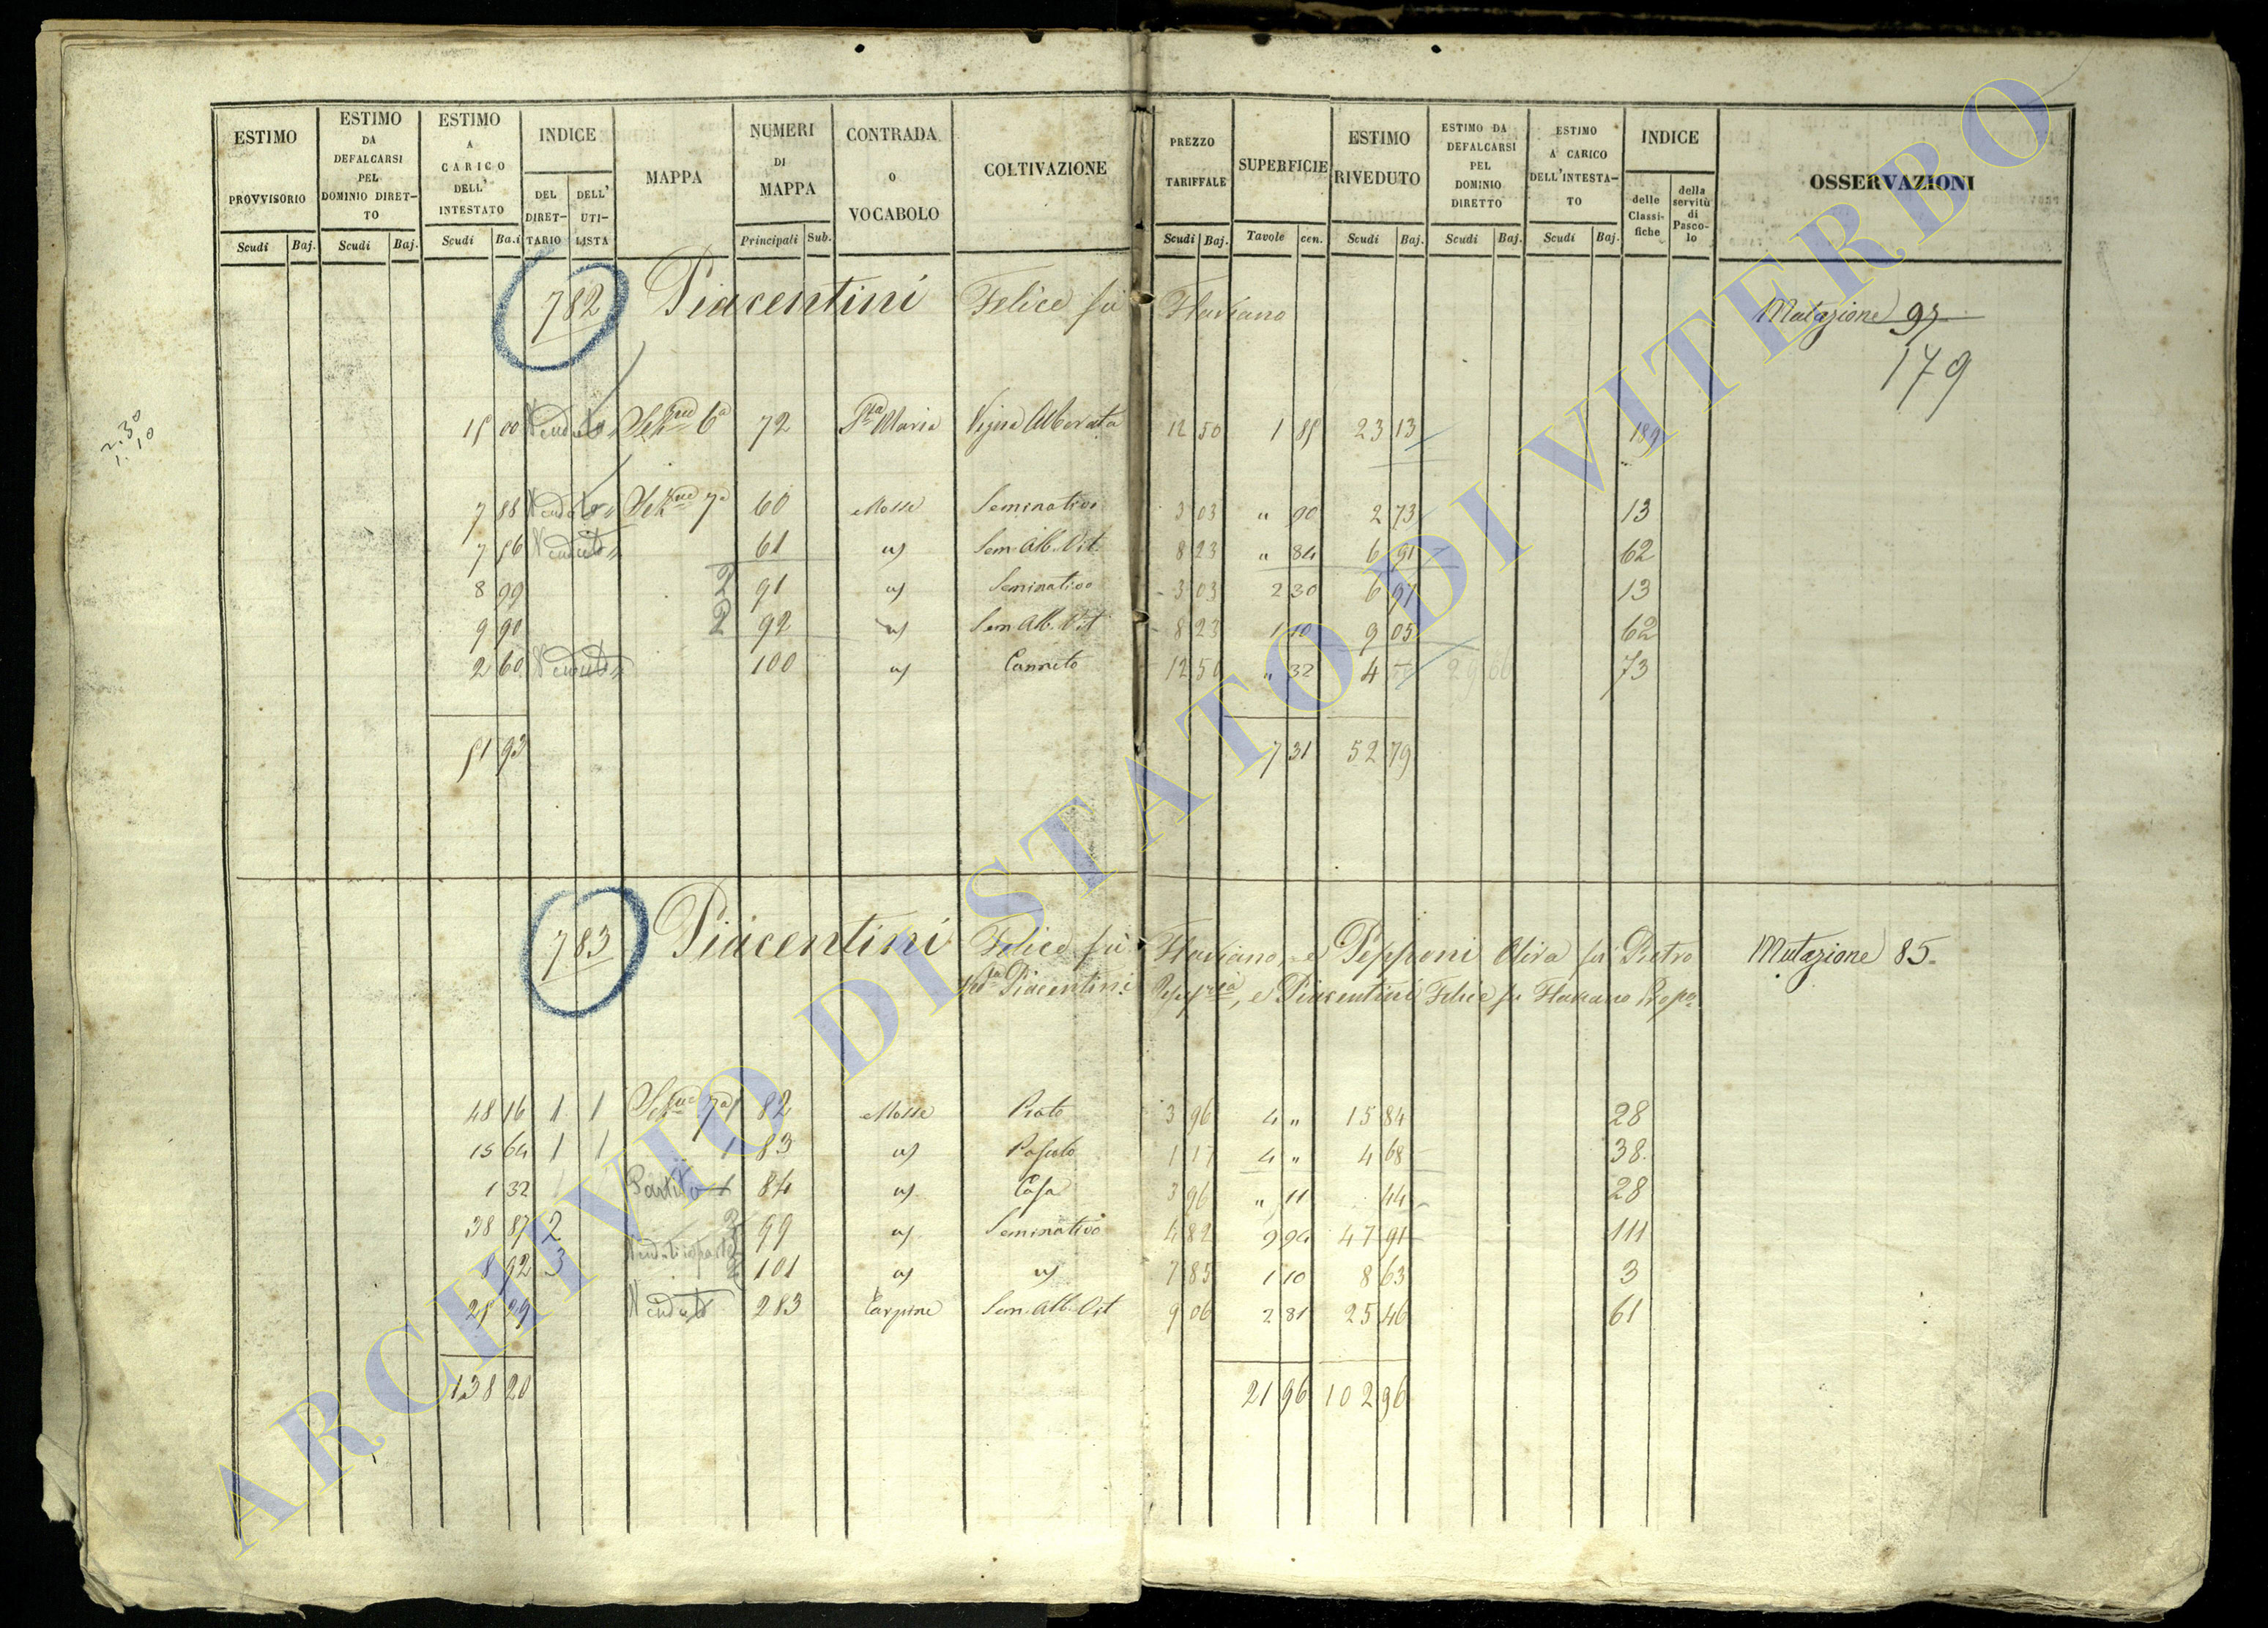 ESTIMO PROVVISORIO
Scudi Baj.
ESTIMO DA DEFALCARSI PEL DOMINIO DIRET-TO
Scudi Baj.
ESTIMO A CARICO DELL' INTESTATO
Scudi Ba.i
INDICE
DEL DIRET-TARIO
DELL' UTI-LISTA
MAPPA
NUMERI DI MAPPA
Principali Sub.
CONTRADA o VOCABOLO
COLTIVAZIONE
PREZZO TARIFFALE
Scudi Baj.
SUPERFICIE
Tavole cen.
ESTIMO RIVEDUTO
Scudi Baj.
ESTIMO DA DEFALCARSI PEL DOMINIO DIRETTO
Scudi Baj.
ESTIMO A CARICO DELL'INTESTA-TO
Scudi Baj.
INDICE
delle Classi-fiche
della servitù di Pasco-lo
OSSERVAZIONI
782 Piacentini Felice fù Flaviano Mutazione 97
179
15 00 Venduto Sez.ne 6a 72 S.ta Maria Vigna Alberata 12 50 1 85 23 13 189
7 88 Venduto Sez.ne 7a 60 Molle Seminativo 3 03 " 90 2 73 13
7 56 Venduto 61 Sem. Alb. Vit. 8 23 " 84 6 91 62
8 99 2 91 Seminativo 3 03 2 30 6 97 13
9 90 2 92 Sem. Alb. Vit 8 23 1 10 9 05 62
2 60 Venduto 100 Canneto 12 50 " 32 4 73
51 93 7 31 52 79
783 Piacentini Felice fù Flaviano, e Pepponi Oliva fù Pietro Mutazione 85.
Piacentini e Piacentini Felice fù Flaviano
48 16 1 1 Sez.ne 7a 1 82 Molle Prato 3 96 4 " 15 84 28
15 64 1 1 1 83 Pascolo 1 17 4 " 4 68 38.
1 32 Partito 1 84 Casa 3 96 " 11 44 28
38 87 2 99 Seminativo 4 82 9 94 47 91 111
8 92 3 101 7 85 1 10 8 63 3
25 29 Venduto 283 Carpine Sem. Alb. Vit 9 06 2 81 25 46 61
138 20 21 96 102 96
ARCHIVIO DI STATO DI VITERBO